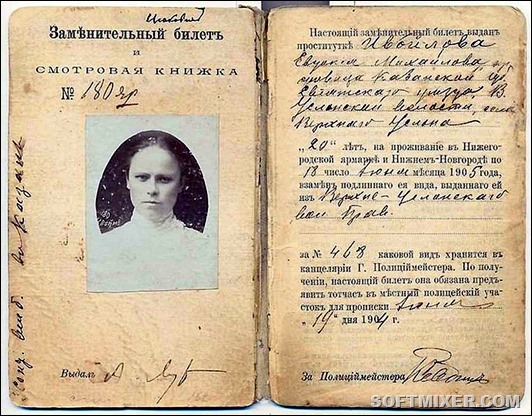 Замѣнительный билетъ
и
СМОТРОВАЯ КНИЖКА
№ 180
Выдалъ
Настоящій замѣнительный билетъ выданъ
проституткѣ
Михайлова
Казанской
Свіяжскаго уѣзда, В.
Услонской волости, села
Верхняго Услона
„20“ лѣтъ, на проживаніе въ Нижего-
родской ярмаркѣ и Нижнемъ-Новгородѣ по
18 число мѣсяца 1905 года,
взамѣнъ подлиннаго ея вида, выданнаго ей
изъ Верхне-Услонскаго
вол. Прав.
за № 468 каковой видъ хранится въ
канцеляріи Г. Полиціймейстера. По полу-
ченіи, настоящій билетъ она обязана предъ-
явить тотчасъ въ мѣстный полицейскій уча-
стокъ для прописки
„19“ дня 1904 г.
За Полиціймейстера
SOFTMIXER.COM